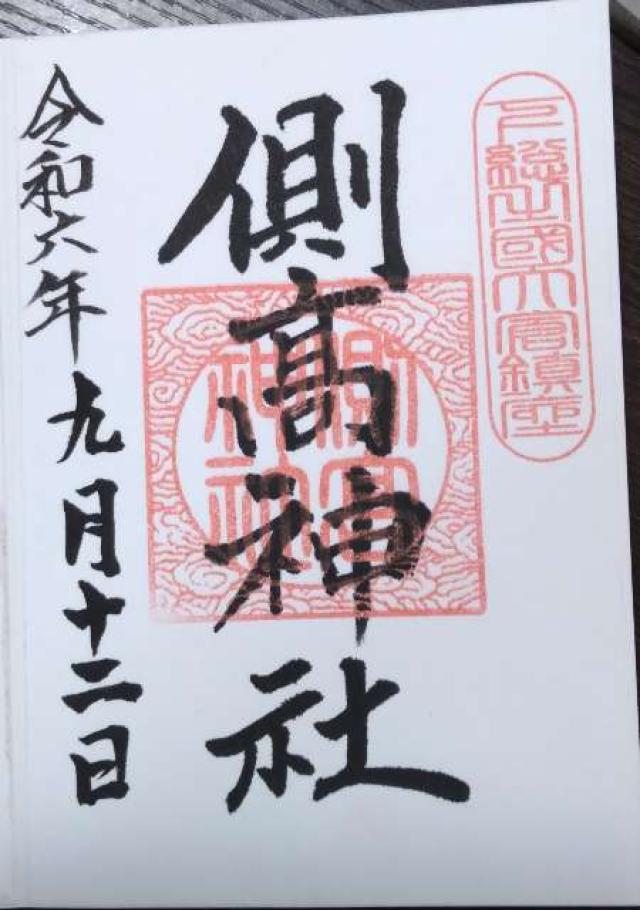 下総之國大宮鎮座
側高神社
側髙神社
令和六年九月十二日